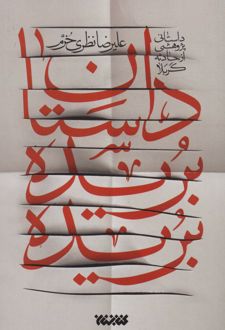 داستانی
پژوهشی
از حادثه
کربلا
علیرضا نظری خرم
داستان
بریده
بریده